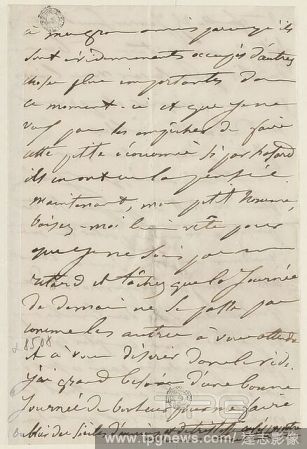 à mes gros amis parcequ'ils
sont évidemment occupés d'autres
choses plus importantes dans
ce moment-ci et que je ne
veux pas les empêcher de faire
cette petite économie si par hasard
ils en ont eu la pensée
maintenant, mon petit homme,
baisez-moi bien vite pour
que je ne sois pas en
retard et tâchez que la journée
de demain ne se passe pas
comme les autres à vous attendre
et à vous désirer dans le vide.
J'ai grand besoin d'une bonne
journée de bonheur pour me faire
oublier des siècles d'ennuis et de
8508
TPG
www.tpgnews.com 達志影像